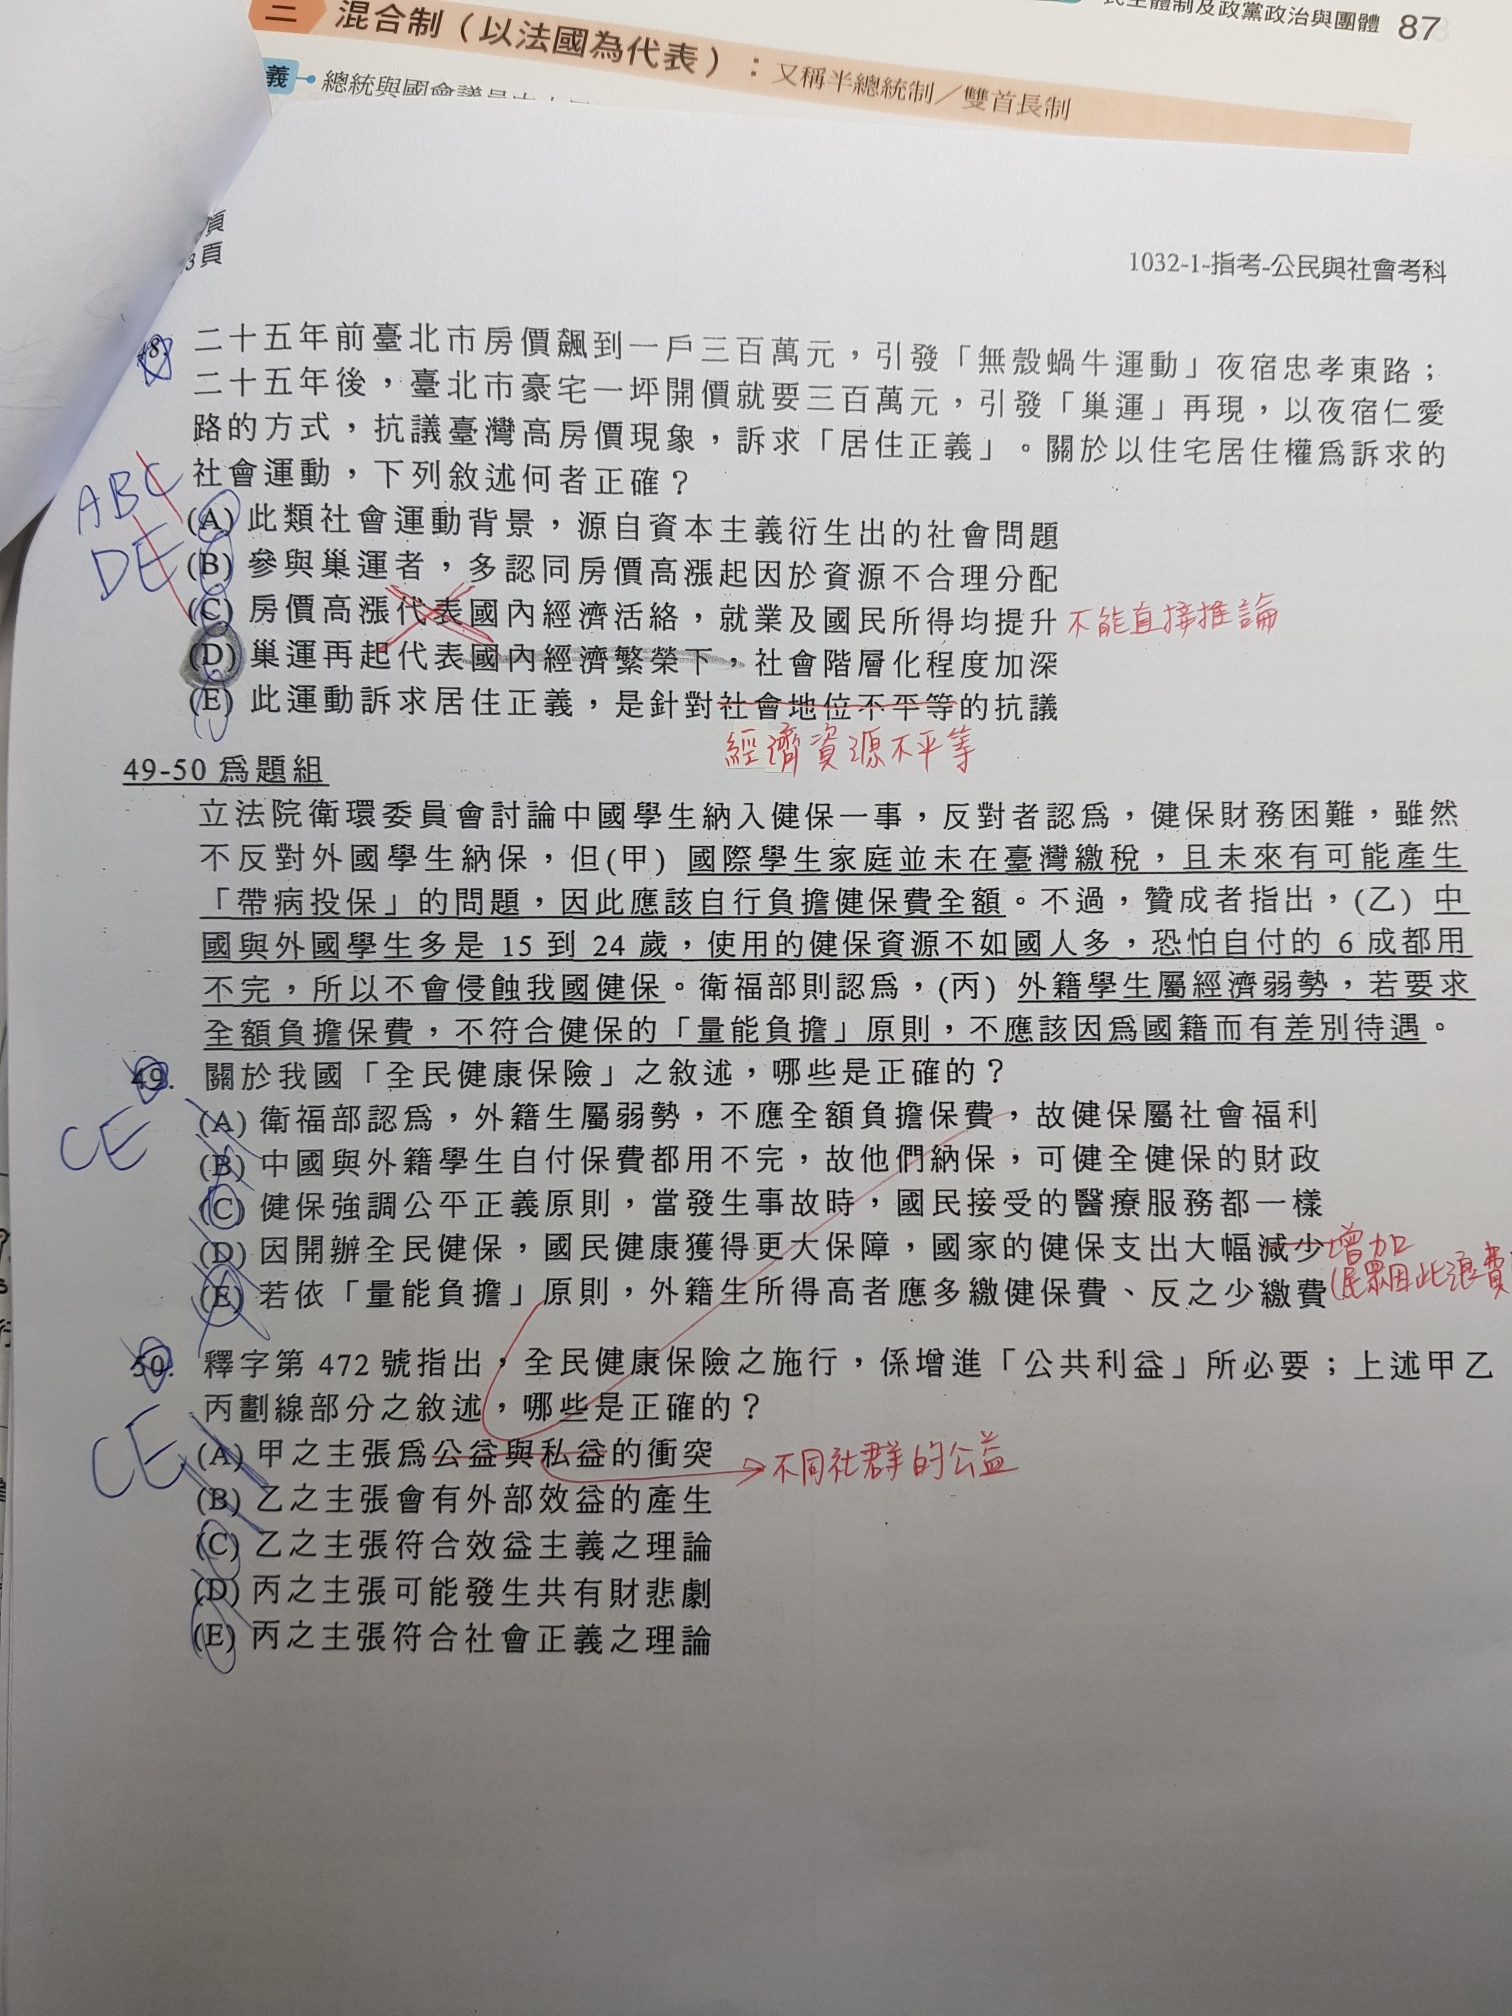 民主體制及政黨政治與團體 87
混合制（以法國為代表）：又稱半總統制／雙首長制
義 總統與國會議員
頁
3頁
1032-1-指考-公民與社會考科
48. 二十五年前臺北市房價飆到一戶三百萬元，引發「無殼蝸牛運動」夜宿忠孝東路；
二十五年後，臺北市豪宅一坪開價就要三百萬元，引發「巢運」再現，以夜宿仁愛
路的方式，抗議臺灣高房價現象，訴求「居住正義」。關於以住宅居住權爲訴求的
社會運動，下列敘述何者正確？
ABC
DE
(A) 此類社會運動背景，源自資本主義衍生出的社會問題
(B) 參與巢運者，多認同房價高漲起因於資源不合理分配
(C) 房價高漲代表國內經濟活絡，就業及國民所得均提升 不能直接推論
(D) 巢運再起代表國內經濟繁榮下，社會階層化程度加深
(E) 此運動訴求居住正義，是針對社會地位不平等的抗議
經濟資源不平等
49-50 爲題組
立法院衛環委員會討論中國學生納入健保一事，反對者認爲，健保財務困難，雖然
不反對外國學生納保，但(甲) 國際學生家庭並未在臺灣繳稅，且未來有可能產生
「帶病投保」的問題，因此應該自行負擔健保費全額。不過，贊成者指出，(乙) 中
國與外國學生多是 15 到 24 歲，使用的健保資源不如國人多，恐怕自付的 6 成都用
不完，所以不會侵蝕我國健保。衛福部則認爲，(丙) 外籍學生屬經濟弱勢，若要求
全額負擔保費，不符合健保的「量能負擔」原則，不應該因爲國籍而有差別待遇。
49. 關於我國「全民健康保險」之敘述，哪些是正確的？
CE
(A) 衛福部認爲，外籍生屬弱勢，不應全額負擔保費，故健保屬社會福利
(B) 中國與外籍學生自付保費都用不完，故他們納保，可健全健保的財政
(C) 健保強調公平正義原則，當發生事故時，國民接受的醫療服務都一樣
(D) 因開辦全民健保，國民健康獲得更大保障，國家的健保支出大幅減少 增加
(民眾因此浪費
(E) 若依「量能負擔」原則，外籍生所得高者應多繳健保費、反之少繳費
50. 釋字第 472 號指出，全民健康保險之施行，係增進「公共利益」所必要；上述甲乙
丙劃線部分之敘述，哪些是正確的？
CE
(A) 甲之主張爲公益與私益的衝突 不同社群的公益
(B) 乙之主張會有外部效益的產生
(C) 乙之主張符合效益主義之理論
(D) 丙之主張可能發生共有財悲劇
(E) 丙之主張符合社會正義之理論